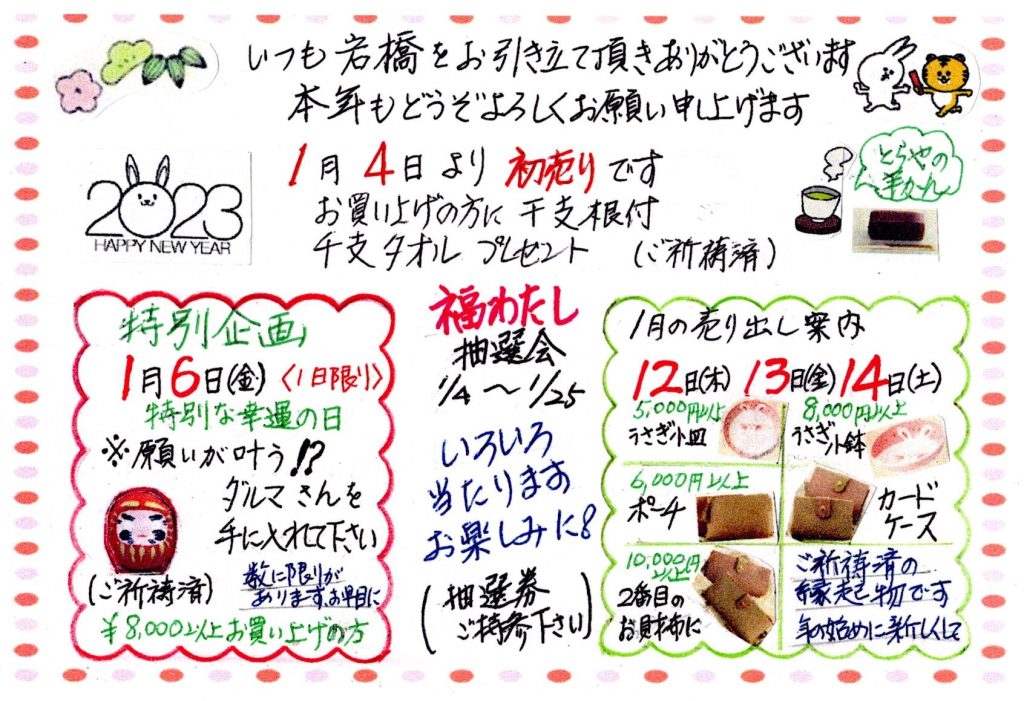 いつも岩橋をお引き立て頂きありがとうございます
本年もどうぞよろしくお願い申し上げます
2023
HAPPY NEW YEAR
1月4日より初売りです
お買い上げの方に干支根付
干支タオルプレゼント (ご祈祷済)
とらやの
羊かん
特別企画
1月6日(金)〈1日限り〉
特別な幸運の日
※願いが叶う!?
ダルマさんを
手に入れて下さい
(ご祈祷済)
数に限りが
あります。お早目に
¥8,000以上お買い上げの方
福わたし
抽選会
1/4〜1/25
いろいろ
当たります
お楽しみに♪
(抽選券
ご持参下さい)
1月の売り出し案内
12日(木) 13日(金) 14日(土)
5,000円以上
うさぎ小皿
8,000円以上
うさぎ小鉢
6,000円以上
ポーチ
カード
ケース
10,000円
以上
2番目の
お財布に
ご祈祷済の
縁起物です
年の始めに新しくして